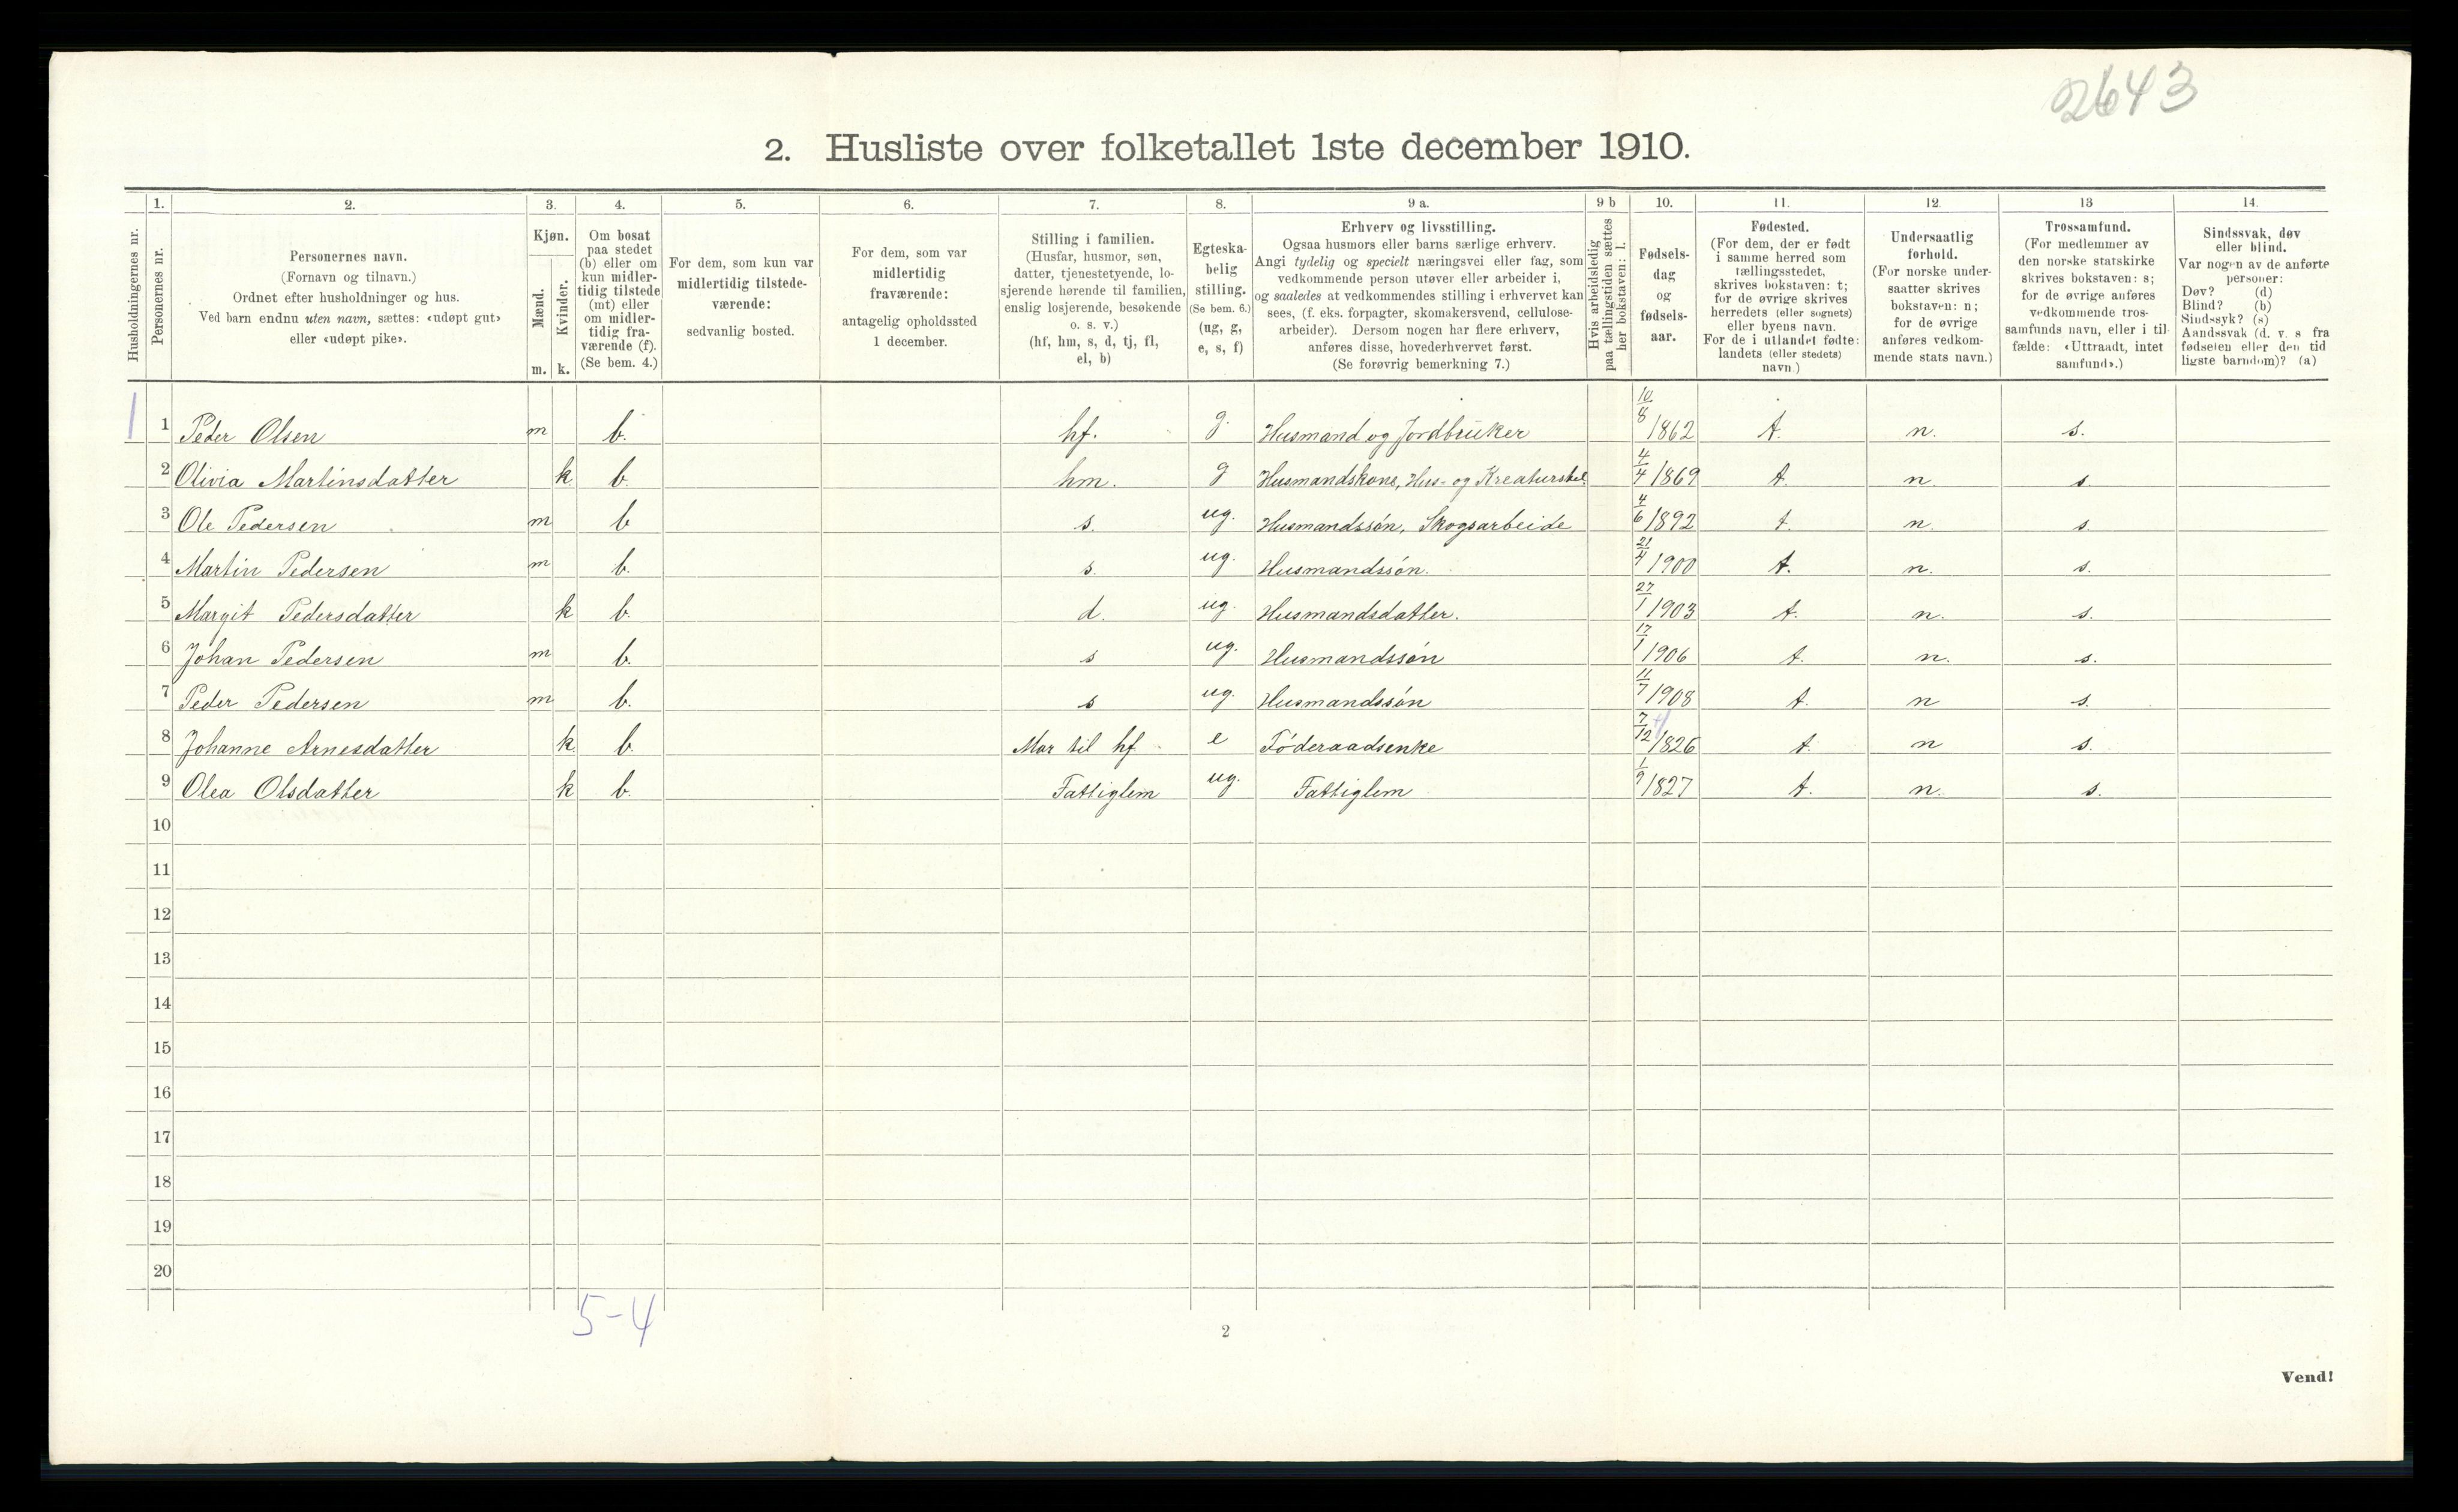 2643
2. Husliste over folketallet 1ste december 1910.
Husholdningernes nr.
1.
Personernes nr.
2.
Personernes navn.
(Fornavn og tilnavn.)
Ordnet efter husholdninger og hus.
Ved barn endnu uten navn, sættes: «udøpt gut»
eller «udøpt pike».
3.
Kjøn.
Mænd.
Kvinder.
m. k.
4.
Om bosat
paa stedet
(b) eller om
kun midler-
tidig tilstede
(mt) eller
om midler-
tidig fra-
værende (f).
(Se bem. 4.)
5.
For dem, som kun var
midlertidig tilstede-
værende:
sedvanlig bosted.
6.
For dem, som var
midlertidig
fraværende:
antagelig opholdssted
1 december.
7.
Stilling i familien.
(Husfar, husmor, søn,
datter, tjenestetyende, lo-
sjerende hørende til familien,
enslig losjerende, besøkende
o. s. v.)
(hf, hm, s, d, tj, fl,
el, b)
8.
Egteska-
belig
stilling.
(Se bem. 6.)
(ug, g,
e, s, f)
9 a.
Erhverv og livsstilling.
Ogsaa husmors eller barns særlige erhverv.
Angi tydelig og specielt næringsvei eller fag, som
vedkommende person utøver eller arbeider i,
og saaledes at vedkommendes stilling i erhvervet kan
sees, (f. eks. forpagter, skomakersvend, cellulose-
arbeider). Dersom nogen har flere erhverv,
anføres disse, hovederhvervet først.
(Se forøvrig bemerkning 7.)
9 b
Hvis arbeidsledig
paa tællingstiden sættes
her bokstaven: l.
10.
Fødsels-
dag
og
fødsels-
aar.
11.
Fødested.
(For dem, der er født
i samme herred som
tællingsstedet,
skrives bokstaven: t;
for de øvrige skrives
herredets (eller sognets)
eller byens navn.
For de i utlandet fødte:
landets (eller stedets)
navn.)
12.
Undersaatlig
forhold.
(For norske under-
saatter skrives
bokstaven: n;
for de øvrige
anføres vedkom-
mende stats navn.)
13
Trossamfund.
(For medlemmer av
den norske statskirke
skrives bokstaven: s;
for de øvrige anføres
vedkommende tros-
samfunds navn, eller i til-
fælde: «Uttraadt, intet
samfund».)
14.
Sindssvak, døv
eller blind.
Var nogen av de anførte
personer:
Døv? (d)
Blind? (b)
Sindssyk? (s)
Aandssvak (d. v. s fra
fødselen eller den tid
ligste barndom)? (a)
1 1 Peder Olsen m b. hf. g. Husmand og Jordbruker 10/8 1862 t. n. s.
2 Olivia Martinsdatter k b. hm. g Husmandskone, Hus- og Kreaturstel. 4/4 1869 t. n. s.
3 Ole Pedersen m b s. ug. Husmandssøn, Skogsarbeide 4/6 1892 t. n. s.
4 Martin Pedersen m b. s. ug. Husmandssøn. 21/4 1900 t. n. s.
5 Margit Pedersdatter k b. d. ug. Husmandsdatter. 27/1 1903 t. n. s.
6 Johan Pedersen m b. s ug. Husmandssøn 17/1 1906 t. n. s.
7 Peder Pedersen m b. s ug. Husmandssøn 11/7 1908 t. n s.
8 Johanne Arnesdatter k b. Mor til hf. e Føderaadsenke 7/12 1826 t. n s.
9 Olea Olsdatter k b. Fattiglem ug. Fattiglem 1/9 1827 t. n. s.
10
11
12
13
14
15
16
17
18
19
20
5-4
2
Vend!